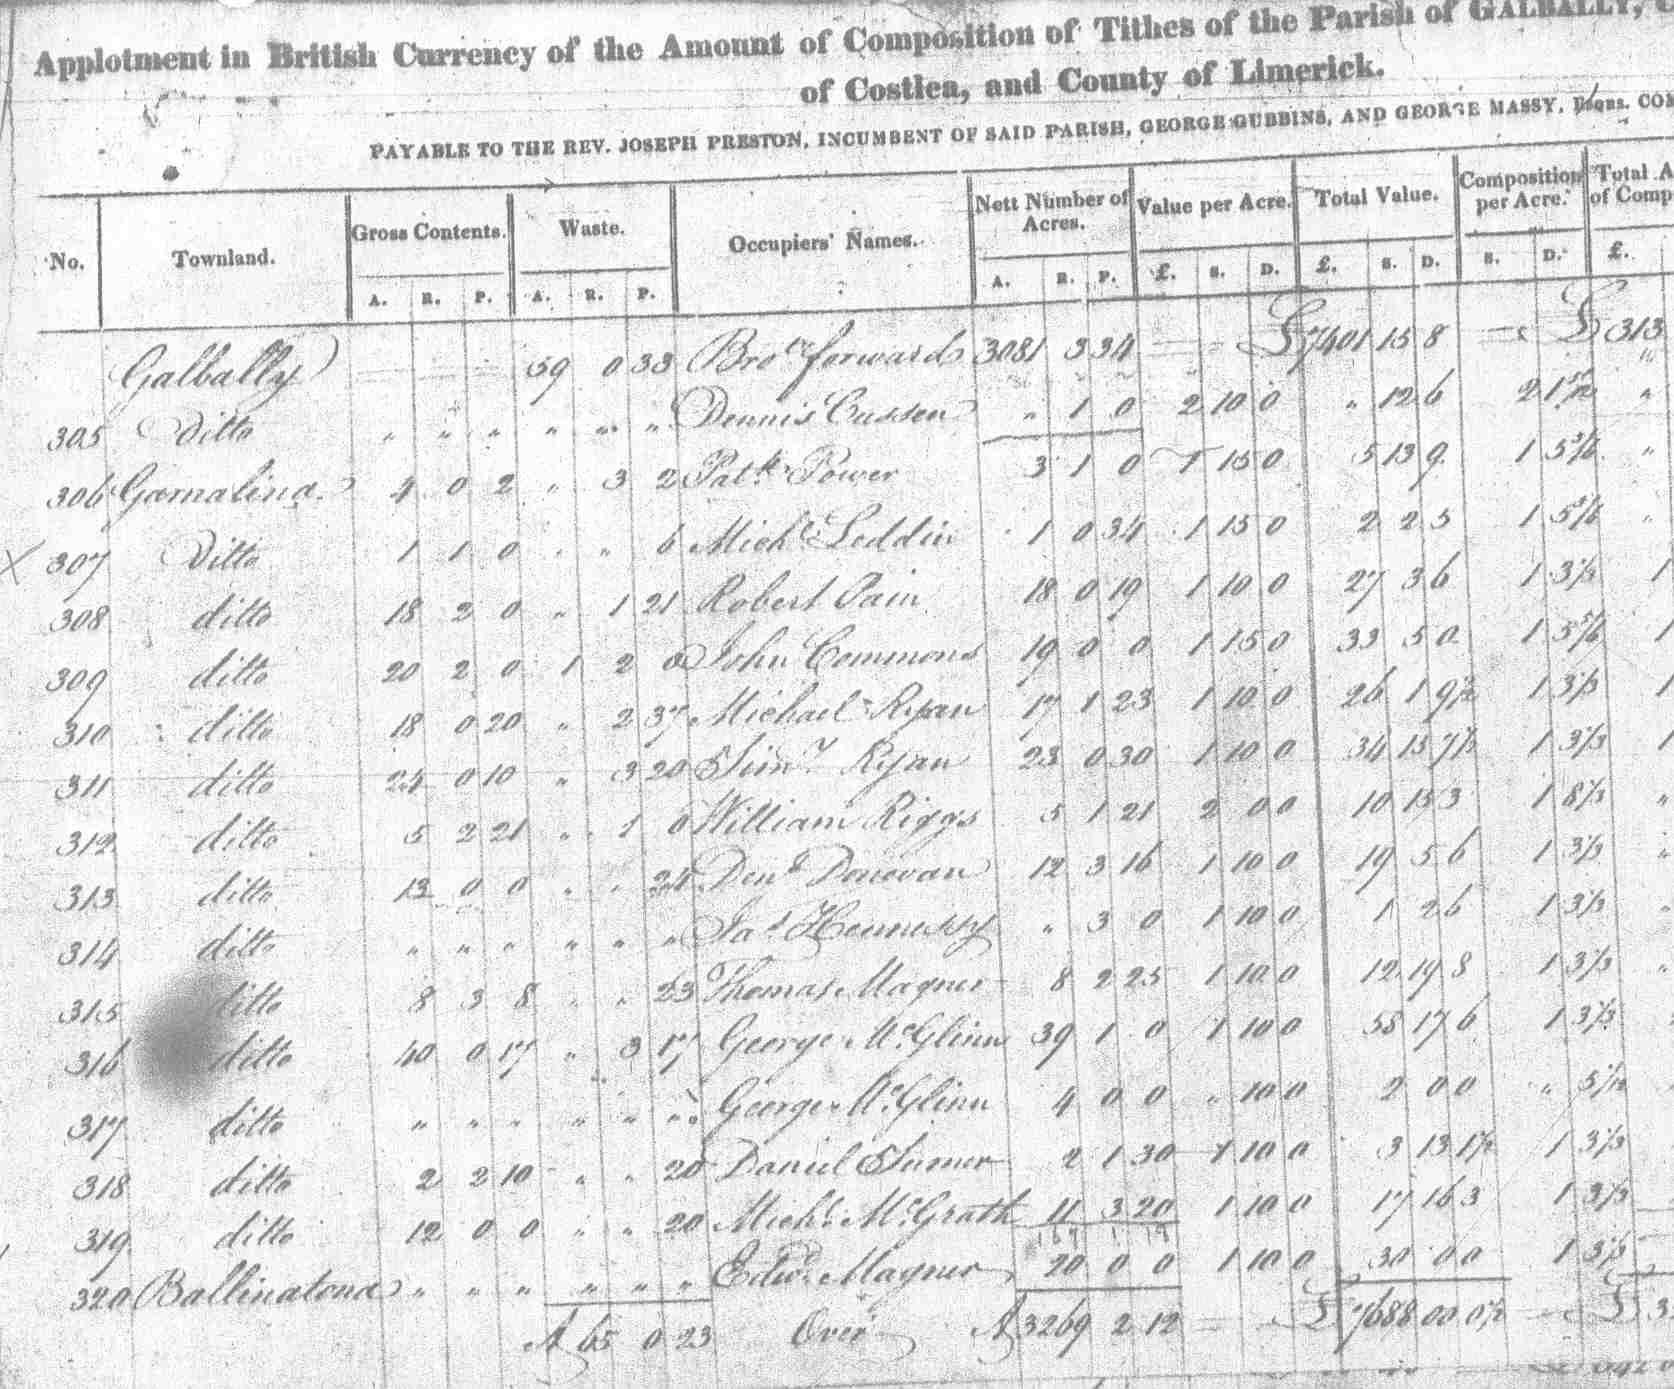 Applotment in British Currency of the Amount of Composition of Tithes of the Parish of GALBALLY,
of Costlea, and County of Limerick.
PAYABLE TO THE REV. JOSEPH PRESTON, INCUMBENT OF SAID PARISH, GEORGE GUBBINS, AND GEORGE MASSY, Esqrs. COM
No. Townland. Gross Contents. Waste. Occupiers' Names. Nett Number of Acres. Value per Acre. Total Value. Composition per Acre. Total A of Comp
A. R. P. A. R. P. A. R. P. £. S. D. £. S. D. S. D. £.
Galbally 59 0 33 Brot forward 3081 3 34 £7401 15 8 £313
305 Ditto " " " " " " Dennis Cussen " 1 0 2 10 0 " 12 6 2 1 "
306 Garnalina 4 0 2 " 3 2 Patk Power 3 1 0 1 15 0 5 13 9 1 5 5/6 "
307 Ditto 1 1 0 " " 6 Michl Leddin 1 0 34 1 15 0 2 2 5 1 5 5/6 "
308 ditto 18 2 0 " 1 21 Robert Pain 18 0 19 1 10 0 27 3 6 1 3 1/3 1
309 ditto 20 2 0 1 2 0 John Commons 19 0 0 1 15 0 33 5 0 1 5 5/6 1
310 ditto 18 0 20 " 2 37 Michael Ryan 17 1 23 1 10 0 26 1 9 1/2 1 3 1/3 1
311 ditto 24 0 10 " 3 20 Timy Ryan 23 0 30 1 10 0 34 15 7 1/2 1 3 1/3 1
312 ditto 5 2 21 " 1 0 William Riggs 5 1 21 2 0 0 10 15 3 1 8 1/3 "
313 ditto 13 0 0 " " 24 Dens Donovan 12 3 16 1 10 0 19 5 6 1 3 1/3 "
314 ditto " " " " " " Jas Hennessy " 3 0 1 10 0 1 2 6 1 3 1/3 "
315 ditto 8 3 8 " " 23 Thomas Magner 8 2 25 1 10 0 12 19 8 1 3 1/3 "
316 ditto 40 0 17 " 3 17 George McGlinn 39 1 0 1 10 0 58 17 6 1 3 1/3
317 ditto " " " " " " George McGlinn 4 0 0 " 10 0 2 0 0 " 5 1/12
318 ditto 2 2 10 " " 20 Daniel 2 1 30 1 10 0 3 13 1 1/2 1 3 1/3
319 ditto 12 0 0 " " 20 Michl McGrath 11 3 20 1 10 0 17 16 3 1 3 1/3
320 Ballinatona " " " " " " Edwd Magner 20 0 0 1 10 0 30 0 0 1 3 1/3
A 65 0 23 Over A 3269 2 12 £7688 00 0 1/2 £3